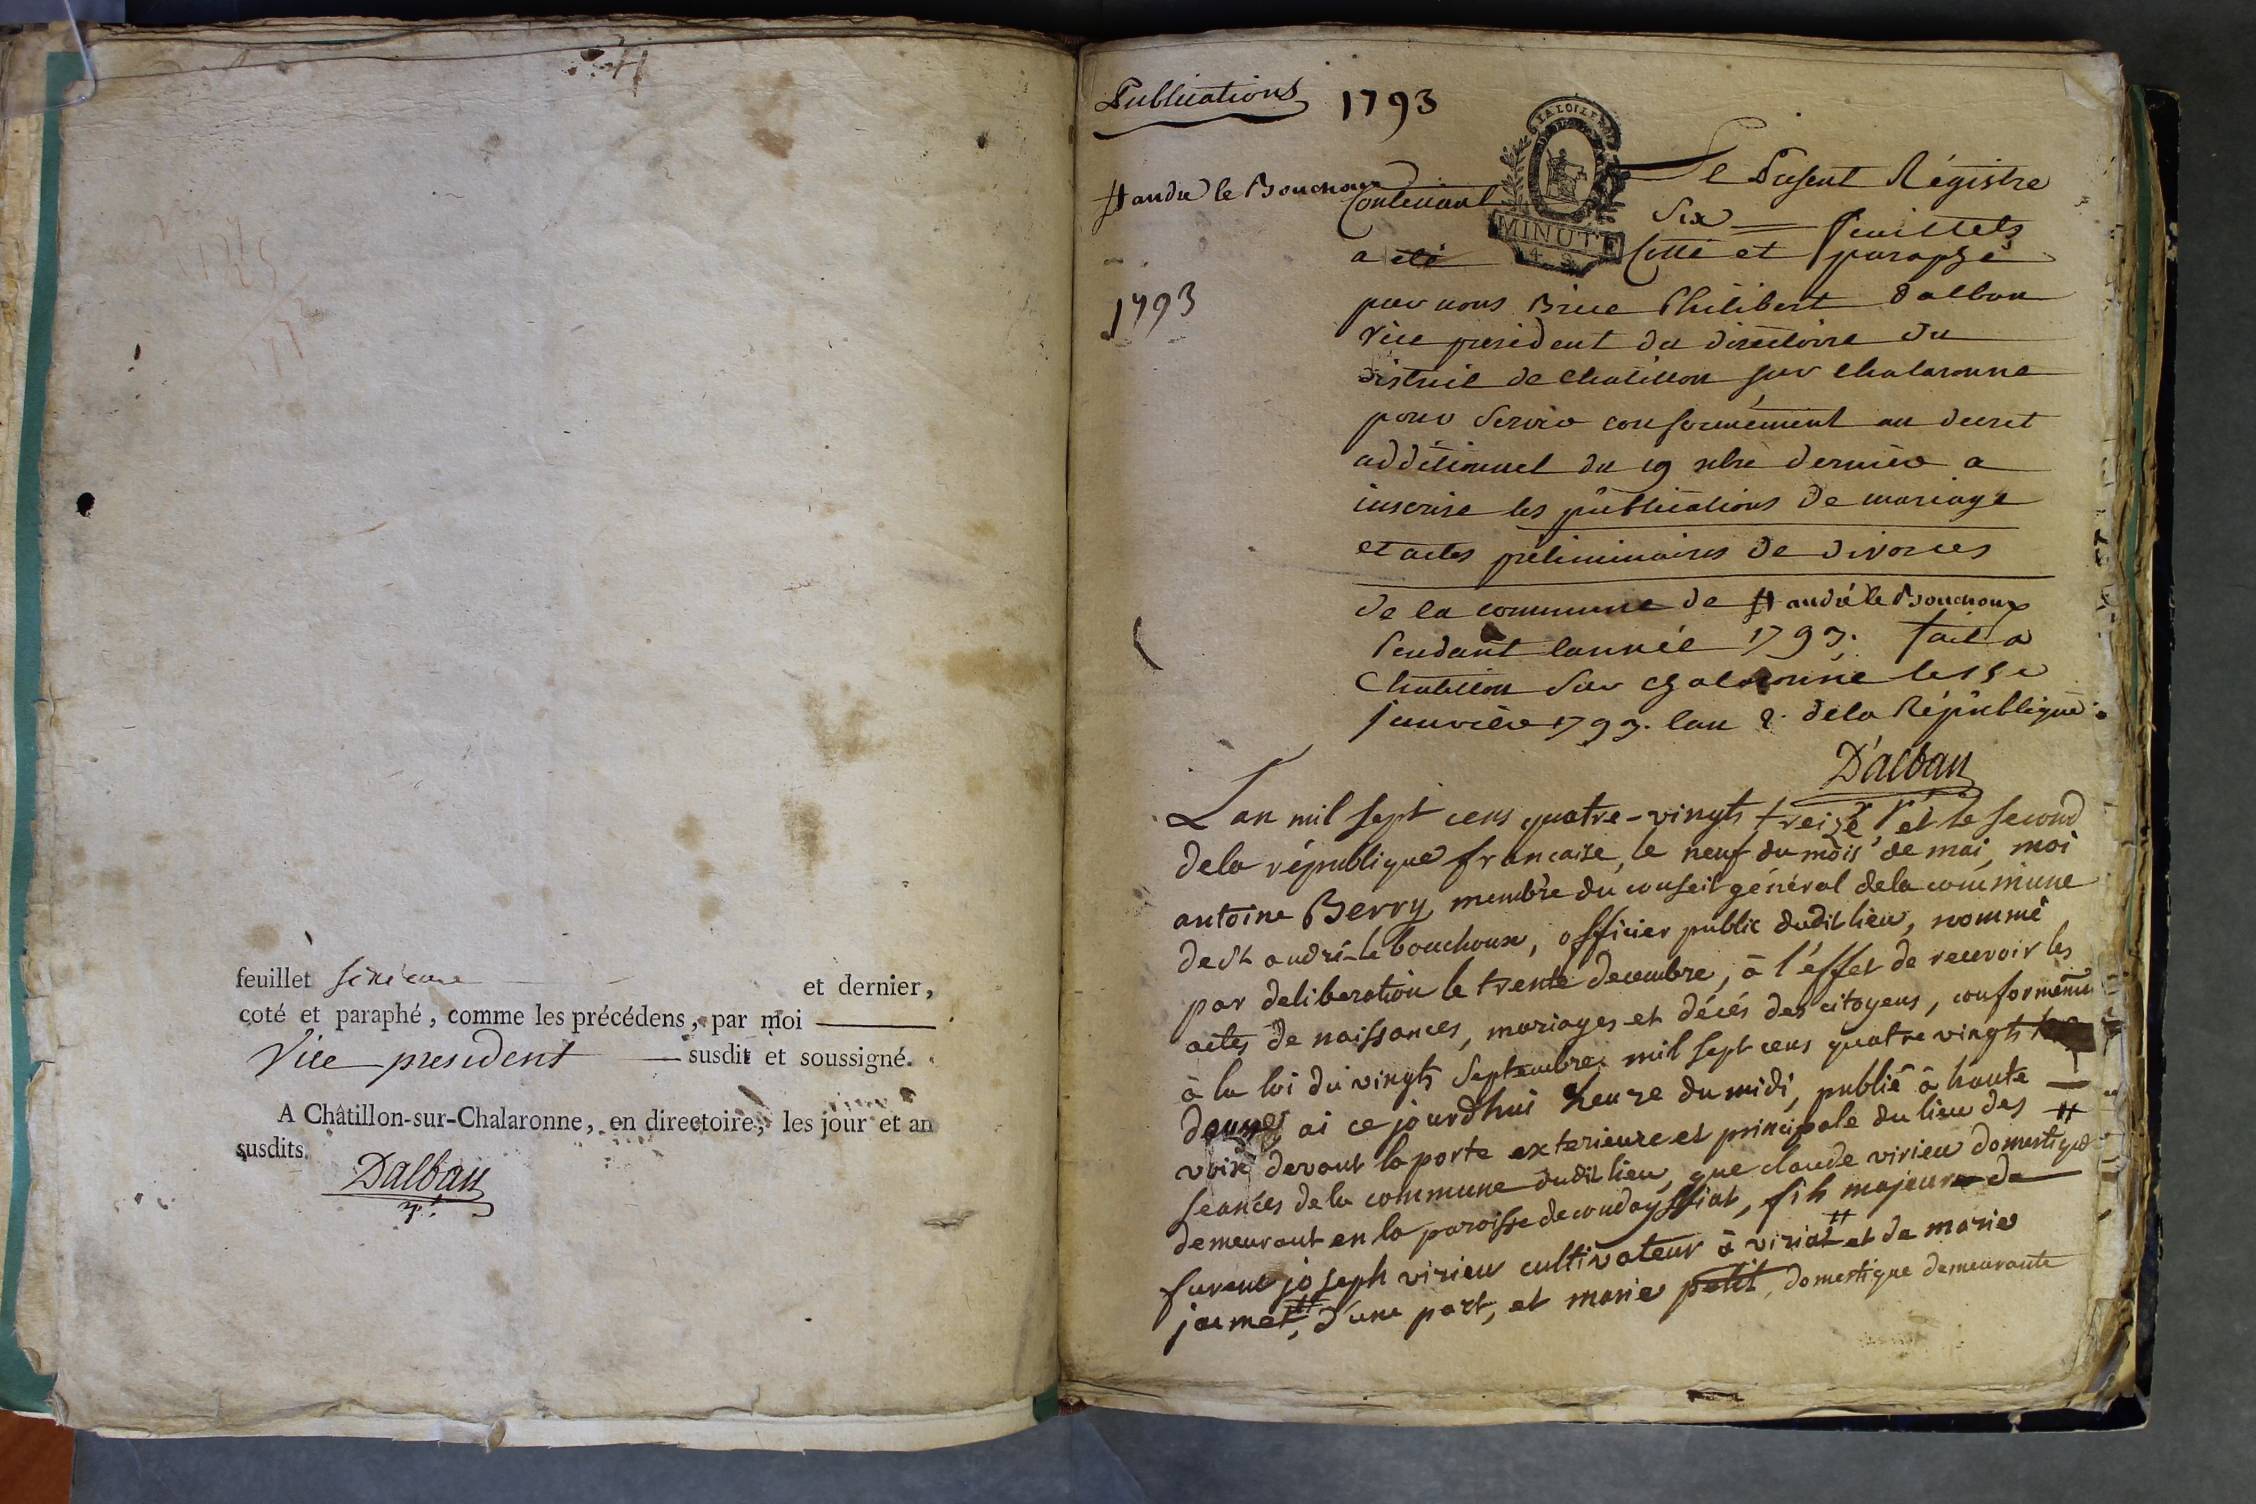 feuillet sixieme et dernier,
coté et paraphé, comme les précédens, par moi
Vice president susdit et soussigné.
A Châtillon-sur-Chalaronne, en directoire, les jour et an
susdits.
Dalban
Publications 1793
St andré le Bouchoux
1793
LA LOI LE ROI
MINUTE
Le Present Régistre
Contenant Six feuillets
a eté Cotté et paraphé
par nous Brice Philibert Dalban
Vice president du directoire du
district de Chatillon sur Chalaronne
pour Servir conformément au decret
additionnel du 19 xbre dernier a
inscrire les publications de mariage
et actes préliminaires de divorces
de la commune de St andré le Bouchoux
Pendant lannée 1793. fait a
Chatillon Sur Chalaronne le
janvier 1793. lan 2. dela République.
D'alban
Lan mil sept cens quatre-vingts treize, et le second
dela république francaise, le neuf du mois de mai, moi
antoine Berry membre du conseil général dela commune
de St andré-le bouchoux, officier public dudit lieu, nommé
par deliberation le trente decembre, à l'effet de recevoir les
actes de naissances, mariages et décés des citoyens, conformémen
à la loi du vingts Septembre mil sept cens quatre vingts
douze ai ce jourdhui heure du midi, publié à haute
voix devant la porte exterieure et principale du lieu des
seances de la commune dudit lieu, que claude virieu domestique
demeurant en la paroisse de condayssiat, fils majeur de
furent joseph virieu cultivateur à viriat et de marie
jacmet, d'une part, et marie petit, domestique demeurante